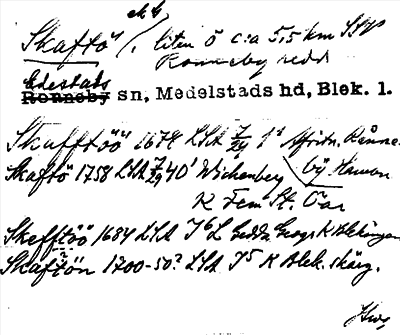 Skaftö, liten ö c:a 5,5 km SSV
Ronneby redd
Edestads
Ronneby sn, Medelstads hd, Blek. l.
Skafftöö 1674 LSA
Skaftö 1758 LSA 40' Wickenberg
K Fem St. Öar
Skefftöö 1684 LSA J6 Gedda Geogr K Blekingen
Skaftön 1700-50? LSA J5 K Blek. skärg.